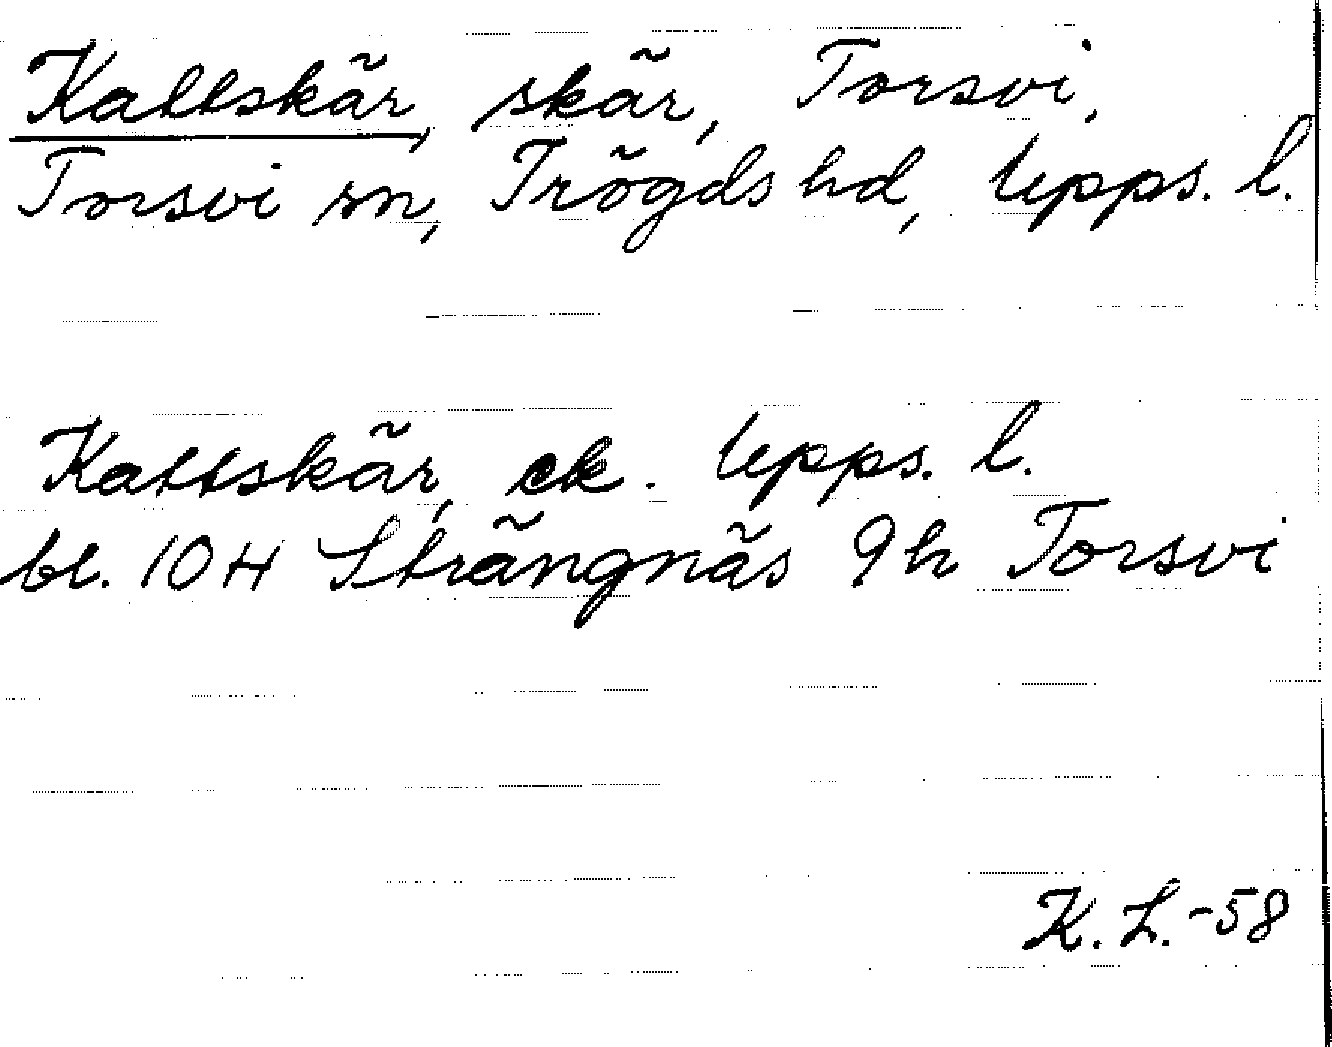 Kattskär, skär, Torsvi,
Torsvi sn, Trögds hd, Upps. l.
Kattskär, ek. Upps. l.
bl. 10 H Strängnäs 9h Torsvi
K. L. -58